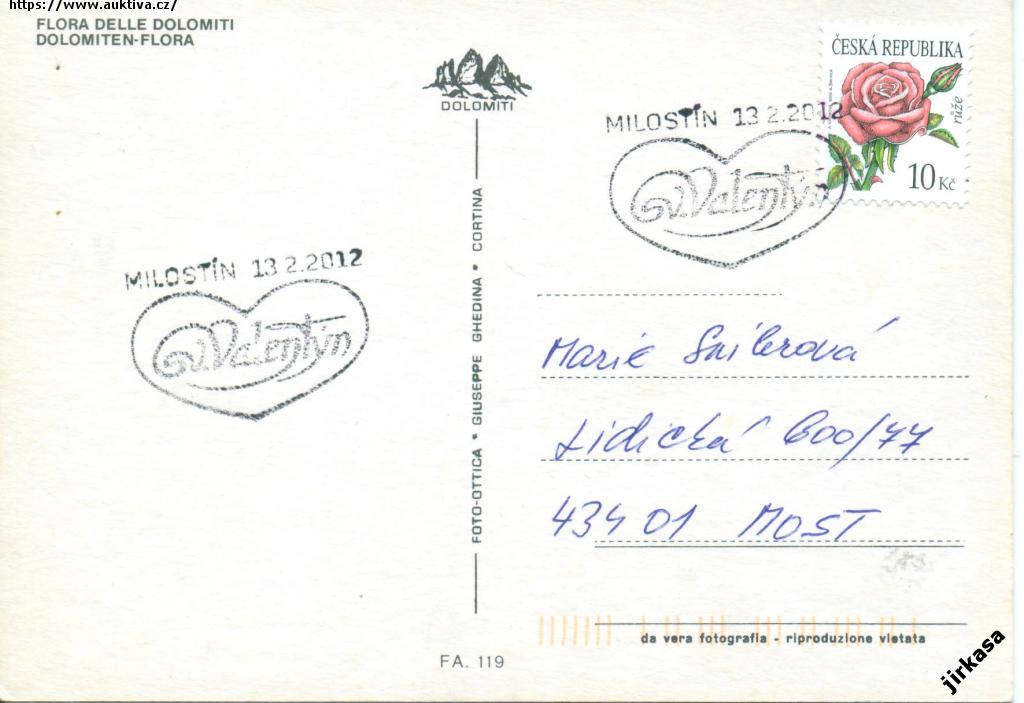 https://www.auktiva.cz/
FLORA DELLE DOLOMITI
DOLOMITEN-FLORA
DOLOMITI
ČESKÁ REPUBLIKA
růže
10 Kč
MILOSTÍN 13 2.2012
Valentýn
MILOSTÍN 13 2.2012
Valentýn
FOTO-OTTICA * GIUSEPPE GHEDINA * CORTINA
Marie
Lidická 600/77
434 01 MOST
da vera fotografia - riproduzione vietata
FA. 119
jirkasa